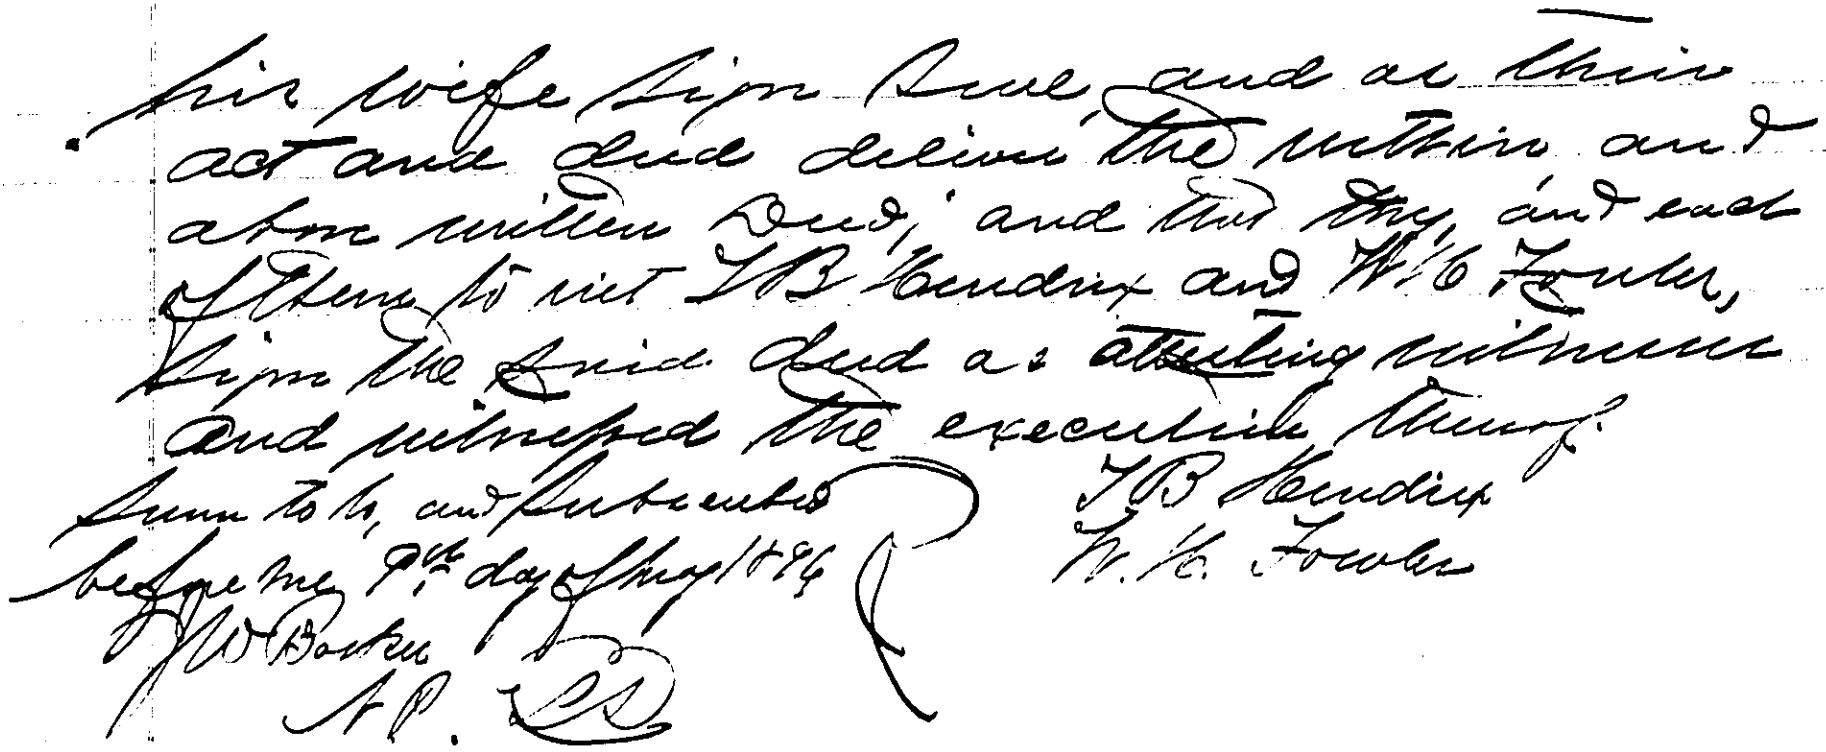 his wife sign seal, and as their
act and deed deliver the within and
above written Deed; and that they, and each
of them to wit T B Hendrix and W H Fowler,
sign the said deed as attesting witnesses
and witnessed the execution thereof.
Sworn to to, and subscribed T B Hendrix
before me 9th day of May 1896 W. H. Fowler
J W Barker
N P. LS